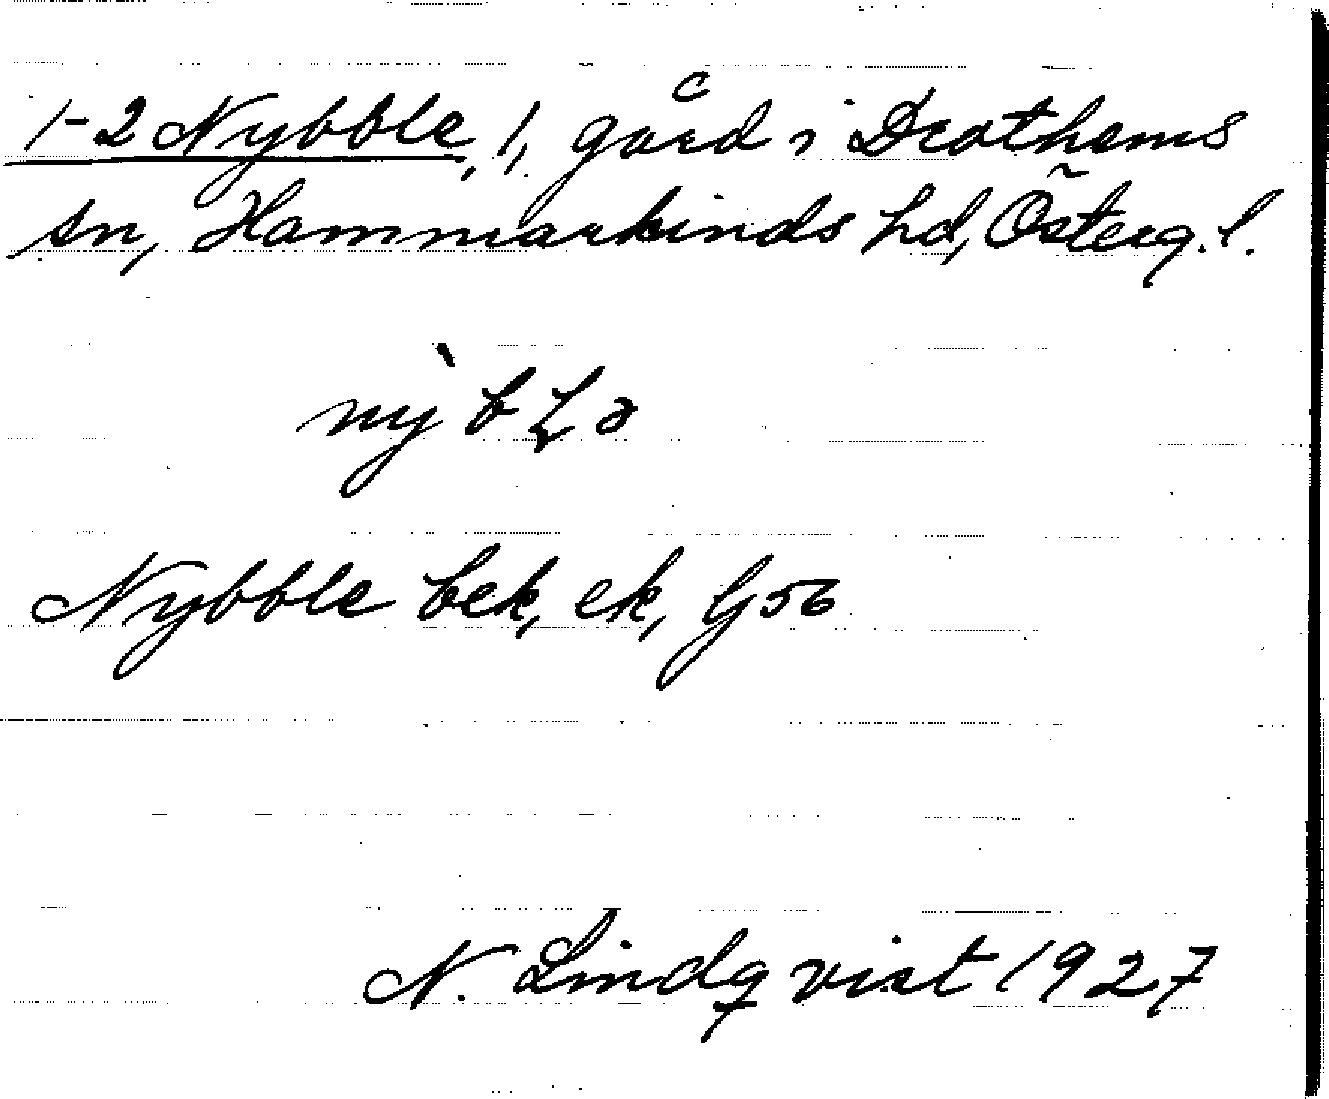 1-2 Nybble, 1, gård i Drothems
sn, Hammarkinds hd, Österg. l.
ny`bLə
Nybble bek, ek, G56
N. Lindqvist 1927